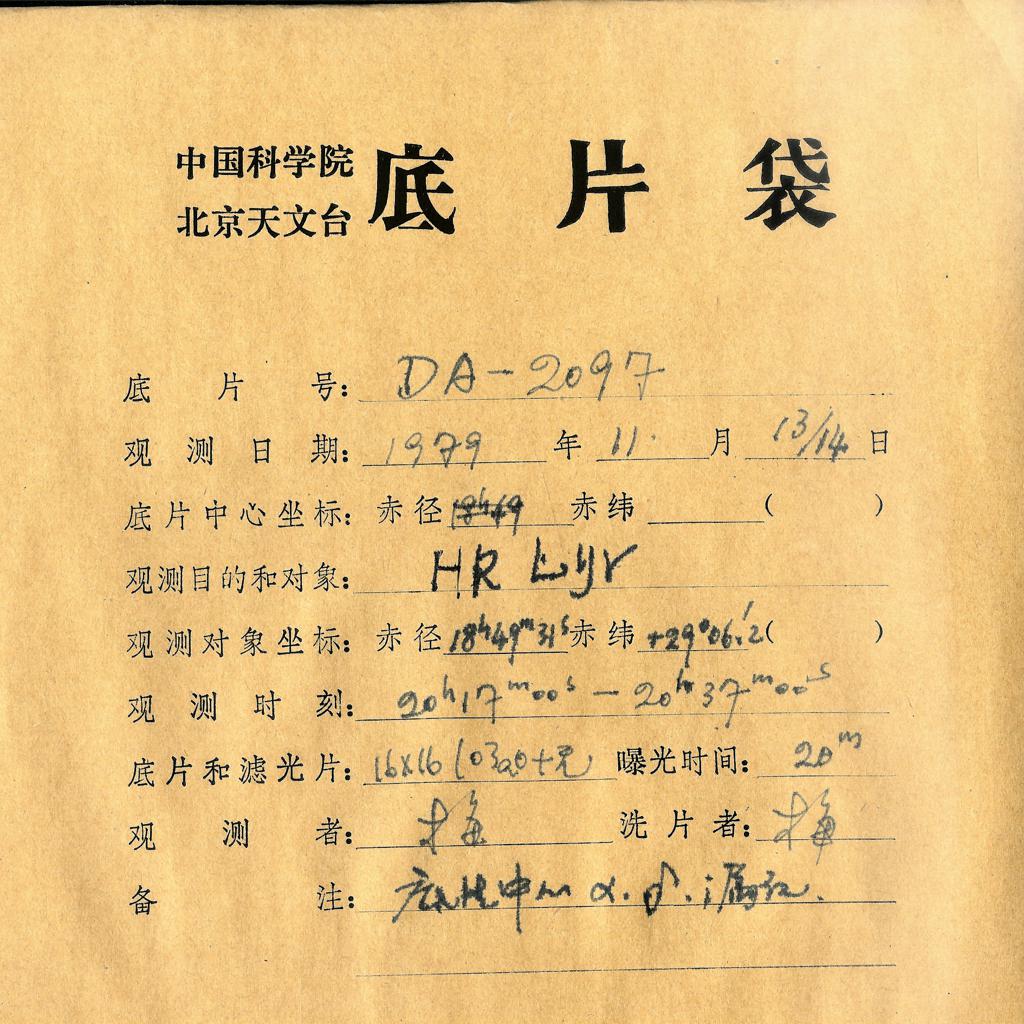 中国科学院
北京天文台
底片袋
底片号: DA-2097
观测日期: 1979 年 11 月 13/14 日
底片中心坐标: 赤径 赤纬 ( )
观测目的和对象: HR Lyr
观测对象坐标: 赤径 18h49m31s 赤纬 +29°06.'2 ( )
观测时刻: 20h17m00s - 20h37m00s
底片和滤光片: 16×16 曝光时间: 20m
观测者: 梅 洗片者: 梅
备注: 中心 α. δ.